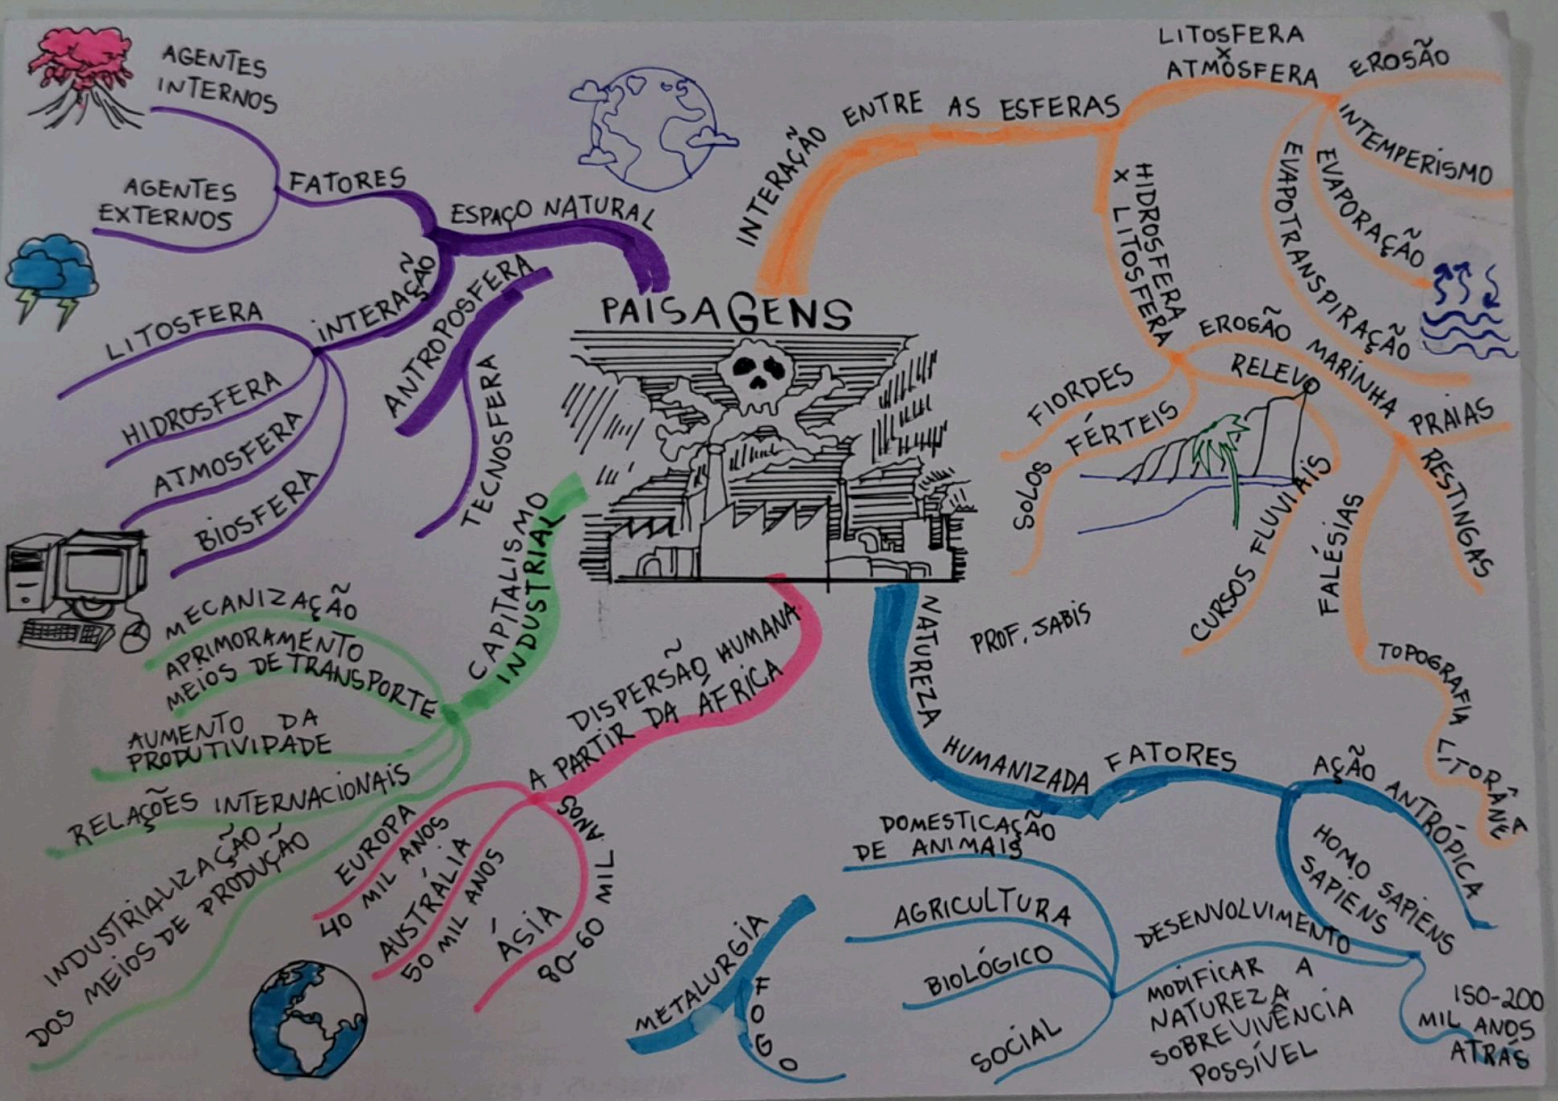 PAISAGENS
ESPAÇO NATURAL
FATORES
AGENTES
INTERNOS
AGENTES
EXTERNOS
INTERAÇÃO
LITOSFERA
HIDROSFERA
ATMOSFERA
BIOSFERA
ANTROPOSFERA
TECNOSFERA
INTERAÇÃO ENTRE AS ESFERAS
LITOSFERA
X
ATMOSFERA
EROSÃO
INTEMPERISMO
EVAPORAÇÃO
EVAPOTRANSPIRAÇÃO
HIDROSFERA
X LITOSFERA
EROSÃO MARINHA
PRAIAS
RESTINGAS
FALÉSIAS
TOPOGRAFIA LITORÂNEA
RELEVO
CURSOS FLUVIAIS
FIORDES
SOLOS FÉRTEIS
PROF. JABIS
CAPITALISMO
INDUSTRIAL
MECANIZAÇÃO
APRIMORAMENTO
MEIOS DE TRANSPORTE
AUMENTO DA
PRODUTIVIDADE
RELAÇÕES INTERNACIONAIS
INDUSTRIALIZAÇÃO
DOS MEIOS DE PRODUÇÃO
DISPERSÃO HUMANA
A PARTIR DA ÁFRICA
EUROPA
40 MIL ANOS
AUSTRÁLIA
50 MIL ANOS
ÁSIA
80-60 MIL ANOS
NATUREZA HUMANIZADA
FATORES
AÇÃO ANTRÓPICA
HOMO SAPIENS
SAPIENS
150-200
MIL ANOS
ATRÁS
DESENVOLVIMENTO
MODIFICAR A
NATUREZA
SOBREVIVÊNCIA
POSSÍVEL
DOMESTICAÇÃO
DE ANIMAIS
AGRICULTURA
BIOLÓGICO
SOCIAL
METALURGIA
FOGO